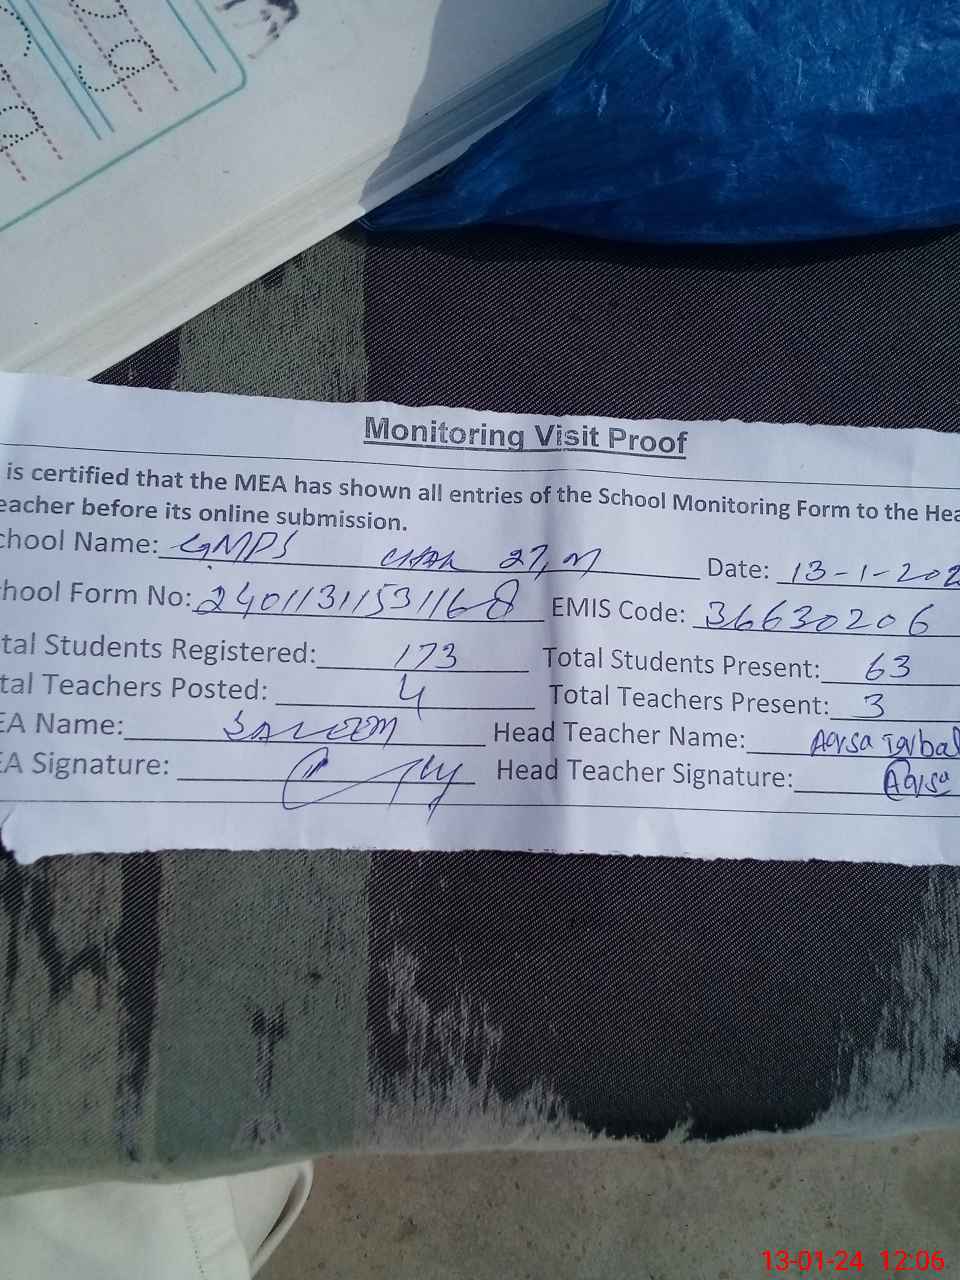 Monitoring Visit Proof
is certified that the MEA has shown all entries of the School Monitoring Form to the Hea
eacher before its online submission.
chool Name: GMPS CHAK 27, M Date: 13-1-202
hool Form No: 24011311531168 EMIS Code: 36630206
tal Students Registered: 173 Total Students Present: 63
tal Teachers Posted: 4 Total Teachers Present: 3
EA Name: SALEEM Head Teacher Name: Aqsa Iqbal
EA Signature: Head Teacher Signature: Aqsa
13-01-24 12:06